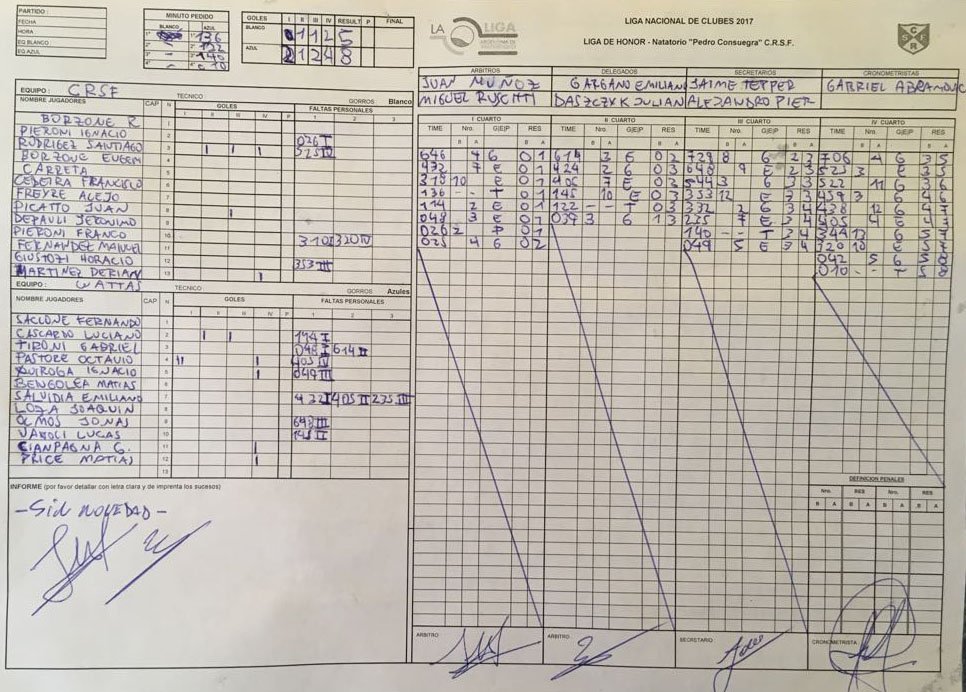 PARTIDO :
FECHA
HORA
EQ BLANCO
EQ AZUL
MINUTO PEDIDO
BLANCO AZUL
1° 1° 136
2° 2° 122
3° - 3° 140
4° - 4° 010
GOLES I II III IV RESULT P FINAL
BLANCO 0 1 1 2 5
AZUL 2 1 2 4 8
LA LIGA
LIGA NACIONAL DE CLUBES 2017
LIGA DE HONOR - Natatorio "Pedro Consuegra" C.R.S.F.
ARBITROS DELEGADOS SECRETARIOS CRONOMETRISTAS
JUAN MUÑOZ GARGANO EMILIANO JAIME TEPPER GABRIEL ABRAMOVIC
MIGUEL RUSCITTI JULIAN ALEJANDRO PIER
EQUIPO : CRSF TECNICO GORROS Blanco
NOMBRE JUGADORES CAP N GOLES FALTAS PERSONALES
I II III IV P 1 2 3
BORZONE R 1
PIERONI IGNACIO 2 026 I
RODRIGEZ SANTIAGO 3 I I I 525 IV
BORZONE EUGEM 4
CARRETA 5
CEDEIRA FRANCISCO 6
FREYRE ALEJO 7
PICATTO JUAN 8 I
DEPAULI JERONIMO 9
PIERONI FRANCO 10 310 I 320 IV
FERNANDEZ MANUEL 11
GIUSTOZI HORACIO 12 353 III
MARTINEZ DERIAN 13 I
EQUIPO : WATTAS TECNICO GORROS Azules
NOMBRE JUGADORES CAP N GOLES FALTAS PERSONALES
I II III IV P 1 2 3
SACLONE FERNANDO 1
CASCARDO LUCIANO 2 I I 114 I
TIRONI GABRIEL 3 048 I 614 II
PASTORE OCTAVIO 4 II I 405 IV
QUIROGA IGNACIO 5 I 049 III
BENGOLEA MATIAS 6
SALVIDIA EMILIANO 7 432 I 405 II 235 III
LOZA JOAQUIN 8
OLMOS JONAS 9 648 III
VAROLI LUCAS 10 145 II
GIANPAGNA G. 11 I
PRICE MATIAS 12 I
13
INFORME (por favor detallar con letra clara y de imprenta los sucesos)
- Sin NOVEDAD -
I CUARTO II CUARTO III CUARTO IV CUARTO
TIME Nro. G|E|P RES TIME Nro. G|E|P RES TIME Nro. G|E|P RES TIME Nro. G|E|P RES
B A B A B A B A B A B A B A B A
646 4 G 0 1 614 3 E 0 2 728 8 G 2 3 706 4 G 3 5
432 7 E 0 1 424 2 G 0 3 648 9 E 2 3 525 3 E 3 5
310 10 E 0 1 405 7 E 0 3 544 3 G 3 3 522 11 G 3 6
136 - - T 0 1 145 10 E 0 3 353 12 E 3 3 459 3 G 4 6
114 2 E 0 1 122 - - T 0 3 332 2 G 3 4 438 12 G 4 7
048 3 E 0 1 039 3 G 1 3 235 7 E 3 4 405 4 E 4 7
026 2 P 0 1 140 - - T 3 4 344 13 G 5 7
025 4 G 0 2 049 5 E 3 4 320 10 E 5 7
042 5 G 5 8
010 - - T 5 8
DEFINICION PENALES
Nro. RES Nro. RES
B A B A B A B A
ARBITRO ARBITRO SECRETARIO CRONOMETRISTA